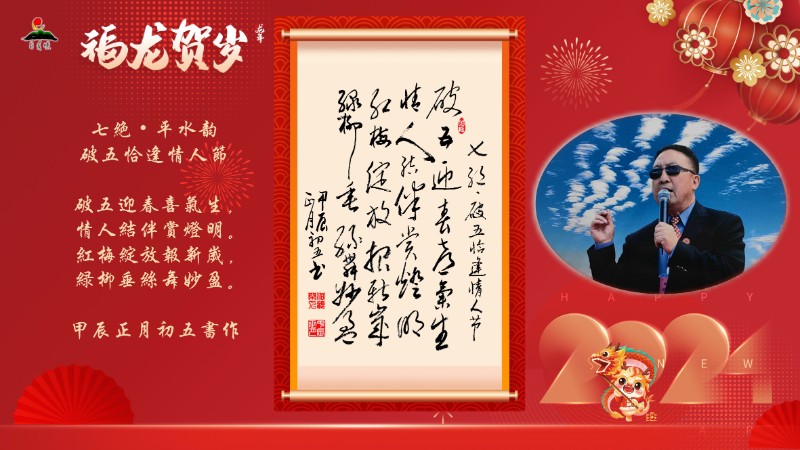 福龙贺岁
龙年
七絶·平水韵
破五恰逢情人節
破五迎春喜氣生，
情人結伴賞燈明。
紅梅綻放報新歲，
緑柳垂絲舞妙盈。
甲辰正月初五書作
七絶·破五恰逢情人节
破五迎春喜氣生
情人结伴赏燈明
红梅绽放报新歲
緑柳垂丝舞妙盈
甲辰
正月初五书
HAPPY
2024
NEW